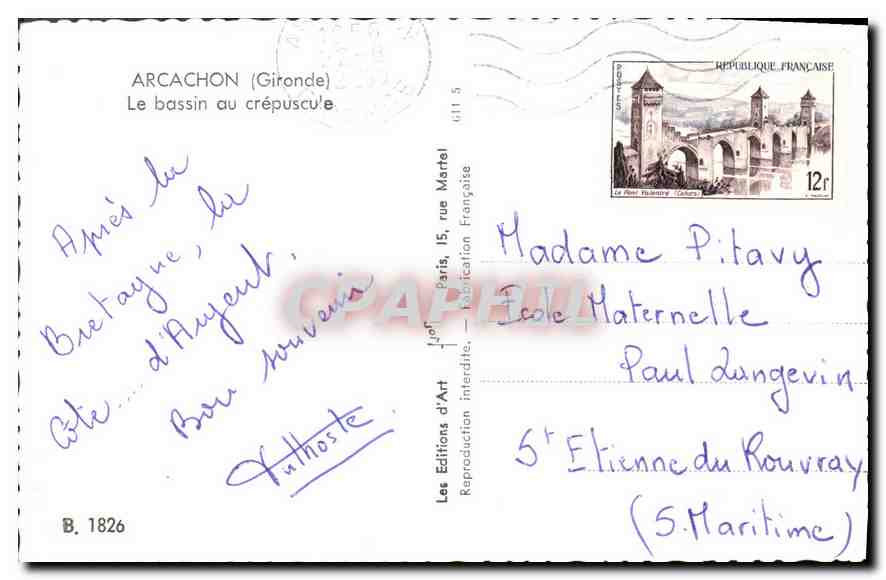 ARCACHON (Gironde)
Le bassin au crépuscule
Après la
Bretagne, la
Côte.... d'Argent.
Bon souvenir
B. 1826
Les Editions d'Art Paris, 15, rue Martel
Reproduction interdite. — Fabrication Française
G11 5
REPUBLIQUE FRANÇAISE
POSTES
Le Pont Valentré (Cahors)
12f
Madame Pitavy
Ecole Maternelle
Paul Langevin
St Etienne du Rouvray
(S. Maritime)
CPAPHIL